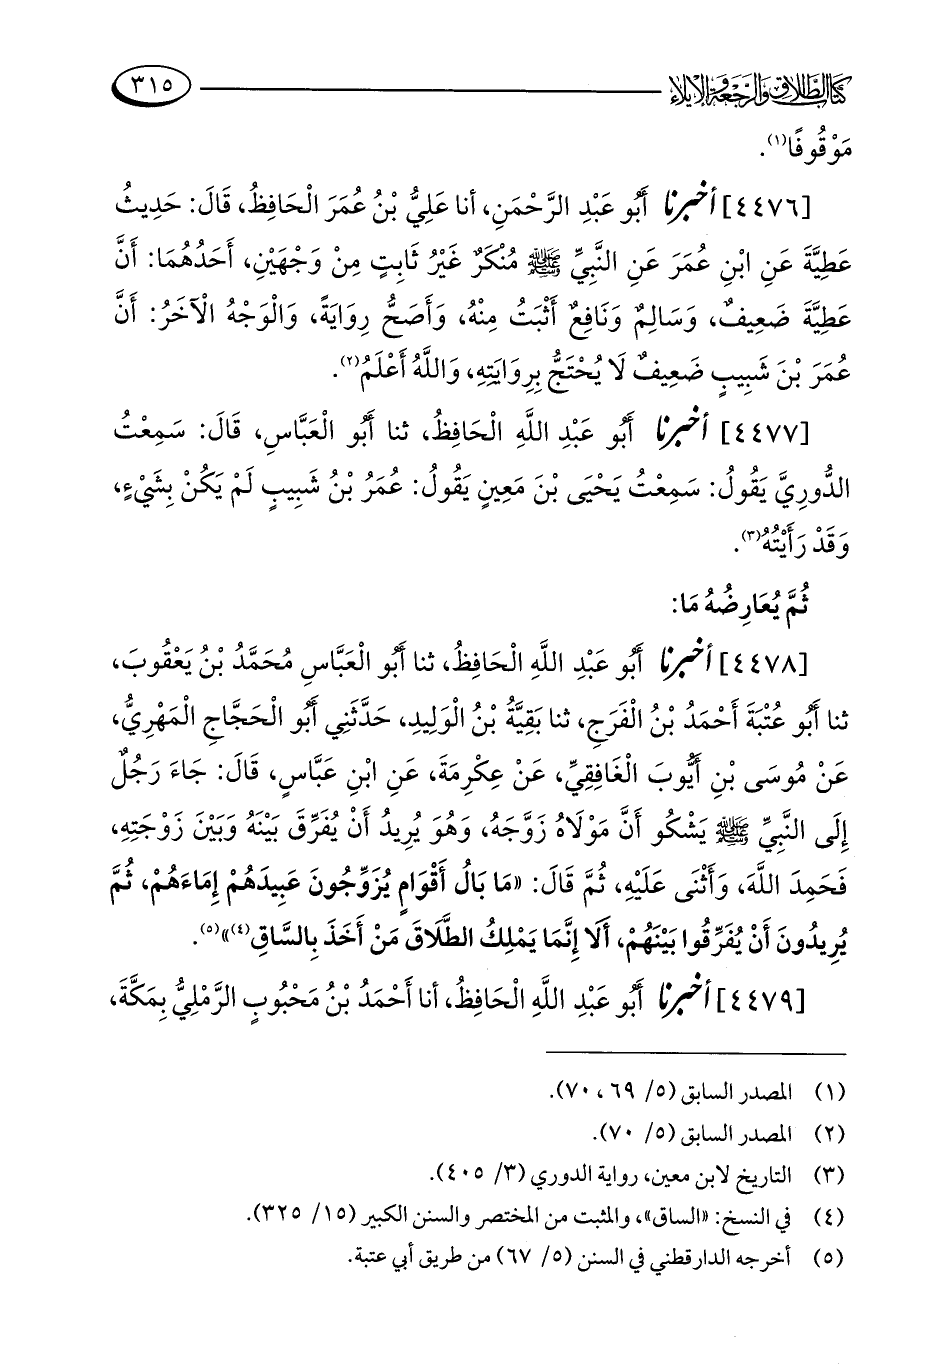 كتاب الطلاق والرجعة والإيلاء ٣١٥
مَوْقُوفًا(١).
[٤٤٧٦] أخبرنا أَبُو عَبْدِ الرَّحْمَنِ، أنا عَلِيُّ بْنُ عُمَرَ الْحَافِظُ، قَالَ: حَدِيثُ
عَطِيَّةَ عَنِ ابْنِ عُمَرَ عَنِ النَّبِيِّ ﷺ مُنْكَرٌ غَيْرُ ثَابِتٍ مِنْ وَجْهَيْنِ، أَحَدُهُمَا: أَنَّ
عَطِيَّةَ ضَعِيفٌ، وَسَالِمٌ وَنَافِعٌ أَثْبَتُ مِنْهُ، وَأَصَحُّ رِوَايَةً، وَالْوَجْهُ الْآخَرُ: أَنَّ
عُمَرَ بْنَ شَبِيبٍ ضَعِيفٌ لَا يُحْتَجُّ بِرِوَايَتِهِ، وَاللَّهُ أَعْلَمُ(٢).
[٤٤٧٧] أخبرنا أَبُو عَبْدِ اللَّهِ الْحَافِظُ، ثنا أَبُو الْعَبَّاسِ، قَالَ: سَمِعْتُ
الدُّورِيَّ يَقُولُ: سَمِعْتُ يَحْيَى بْنَ مَعِينٍ يَقُولُ: عُمَرُ بْنُ شَبِيبٍ لَمْ يَكُنْ بِشَيْءٍ،
وَقَدْ رَأَيْتُهُ(٣).
ثُمَّ يُعَارِضُهُ مَا:
[٤٤٧٨] أخبرنا أَبُو عَبْدِ اللَّهِ الْحَافِظُ، ثنا أَبُو الْعَبَّاسِ مُحَمَّدُ بْنُ يَعْقُوبَ،
ثنا أَبُو عُتْبَةَ أَحْمَدُ بْنُ الْفَرَجِ، ثنا بَقِيَّةُ بْنُ الْوَلِيدِ، حَدَّثَنِي أَبُو الْحَجَّاجِ الْمَهْرِيُّ،
عَنْ مُوسَى بْنِ أَيُّوبَ الْغَافِقِيِّ، عَنْ عِكْرِمَةَ، عَنِ ابْنِ عَبَّاسٍ، قَالَ: جَاءَ رَجُلٌ
إِلَى النَّبِيِّ ﷺ يَشْكُو أَنَّ مَوْلَاهُ زَوَّجَهُ، وَهُوَ يُرِيدُ أَنْ يُفَرِّقَ بَيْنَهُ وَبَيْنَ زَوْجَتِهِ،
فَحَمِدَ اللَّهَ، وَأَثْنَى عَلَيْهِ، ثُمَّ قَالَ: «مَا بَالُ أَقْوَامٍ يُزَوِّجُونَ عَبِيدَهُمْ إِمَاءَهُمْ، ثُمَّ
يُرِيدُونَ أَنْ يُفَرِّقُوا بَيْنَهُمْ، أَلَا إِنَّمَا يَمْلِكُ الطَّلَاقَ مَنْ أَخَذَ بِالسَّاقِ(٤)»(٥).
[٤٤٧٩] أخبرنا أَبُو عَبْدِ اللَّهِ الْحَافِظُ، أنا أَحْمَدُ بْنُ مَحْبُوبٍ الرَّمْلِيُّ بِمَكَّةَ،
(١) المصدر السابق (٥/ ٦٩، ٧٠).
(٢) المصدر السابق (٥/ ٧٠).
(٣) التاريخ لابن معين، رواية الدوري (٣/ ٤٠٥).
(٤) في النسخ: «الساق»، والمثبت من المختصر والسنن الكبير (١٥/ ٣٢٥).
(٥) أخرجه الدارقطني في السنن (٥/ ٦٧) من طريق أبي عتبة.